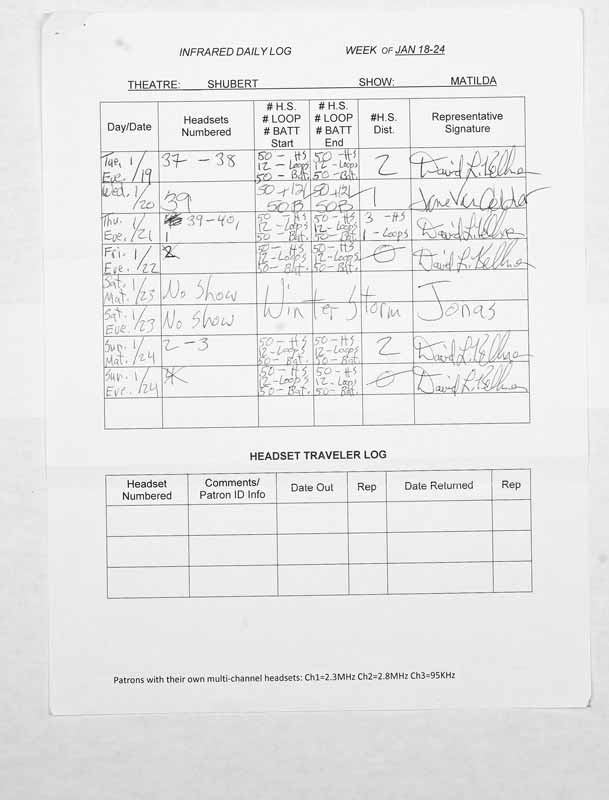 INFRARED DAILY LOG WEEK OF JAN 18-24
THEATRE: SHUBERT SHOW: MATILDA
Day/Date Headsets Numbered # H.S. # LOOP # BATT Start # H.S. # LOOP # BATT End #H.S. Dist. Representative Signature
Tue. 1/19 Eve. 37 - 38 50 - HS 12 - Loops 50 - Bat. 50 - HS 12 - Loops 50 - Bat. 2 David L. Kellman
Wed. 1/20 39 50 + 12L 50 B 50 + 12L 50 B 1 Jane Van
Thu. 1/21 Eve. 39-40, 1 50 - HS 12 - Loops 50 - Bat. 50 - HS 12 - Loops 50 - Bat. 3 - HS 1 - Loops David L. Kellman
Fri. 1/22 Eve. 2 50 - HS 12 - Loops 50 - Bat. 50 - HS 12 - Loops 50 - Bat. 0 David L. Kellman
Sat. 1/23 Mat. No Show Winter Storm Jonas
Sat. 1/23 Eve. No Show
Sun. 1/24 Mat. 2 - 3 50 - HS 12 - Loops 50 - Bat. 50 - HS 12 - Loops 50 - Bat. 2 David L. Kellman
Sun. 1/24 Eve. 4 50 - HS 12 - Loops 50 - Bat. 50 - HS 12 - Loops 50 - Bat. 0 David L. Kellman
HEADSET TRAVELER LOG
Headset Numbered Comments/ Patron ID Info Date Out Rep Date Returned Rep
Patrons with their own multi-channel headsets: Ch1=2.3MHz Ch2=2.8MHz Ch3=95KHz